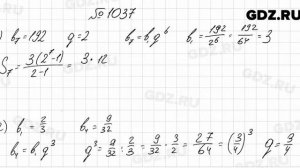 GDZ.RU
№ 1037
) b₇ = 192 q = 2 b₇ = b₁q⁶ b₁ = 192/2⁶ = 192/64 = 3
S₇ = 3(2⁷-1)/2-1 = 3 · 12
2) b₁ = 2/3 b₄ = 9/32
b₄ = b₁q³ q³ = 9/32 : 2/3 = 9/32 · 3/2 = 27/64 = (3/4)³ q = 9/4
GDZ.RU